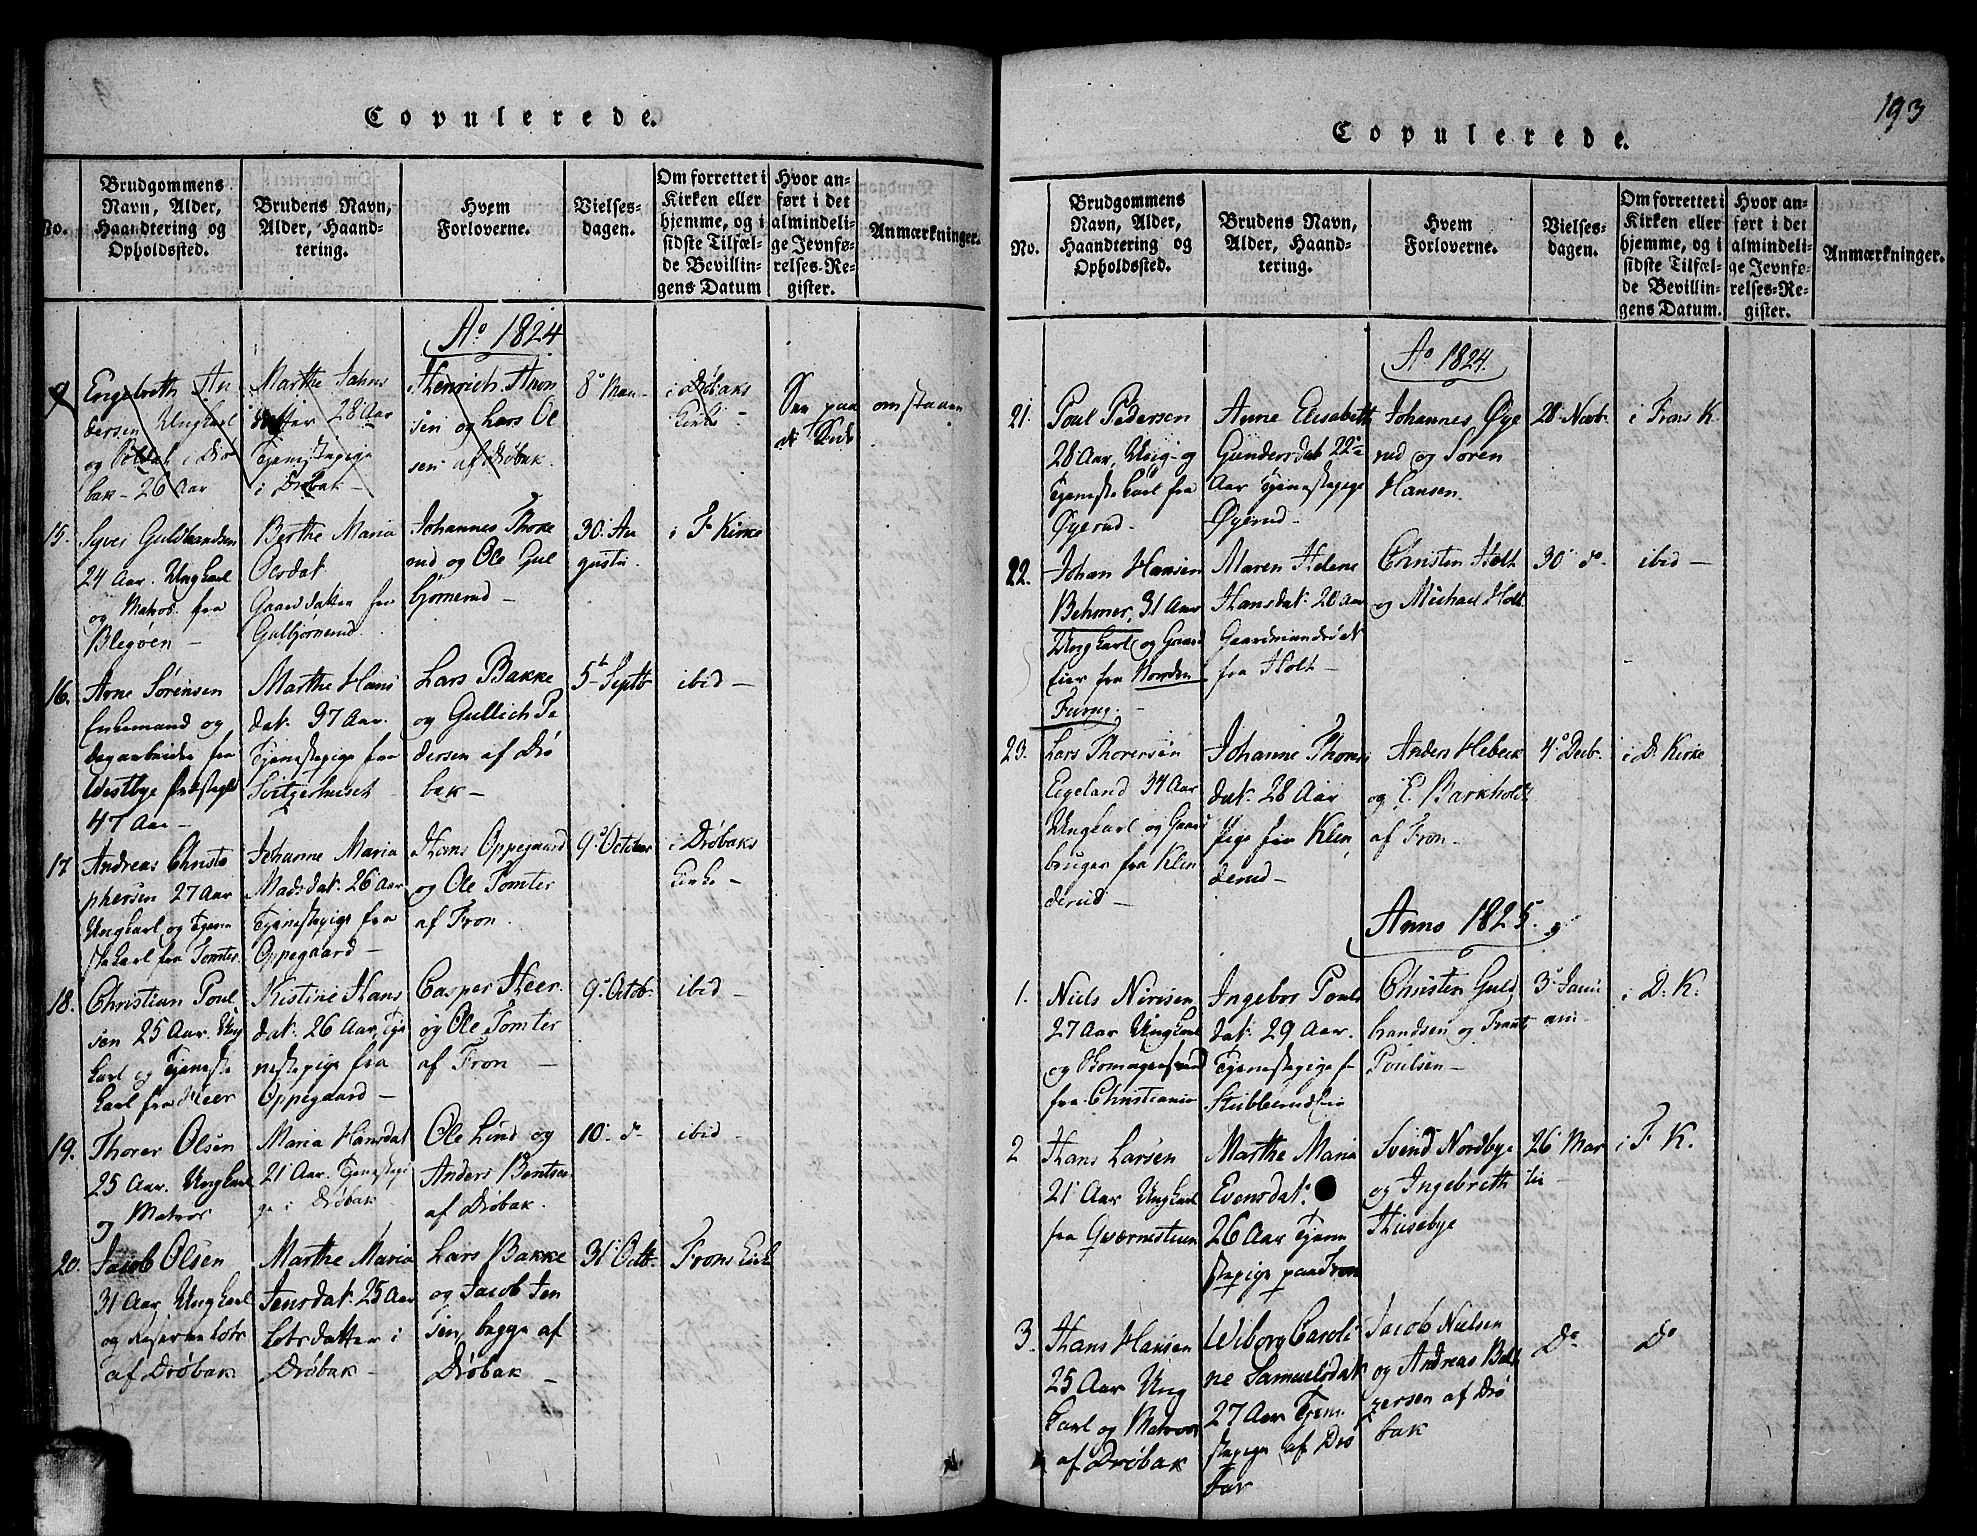 Copulerede.
No.
Brudgommens
Navn, Alder,
Haandtering og
Opholdssted.
Brudens Navn,
Alder, Haand-
tering.
Hvem
Forloverne.
Vielses-
dagen.
Om forrettet i
Kirken eller
hjemme, og i
sidste Tilfæl-
de Bevillin-
gens Datum
Hvor an-
ført i det
almindeli-
ge Jevnfø-
relses-Re-
gister.
Anmærkninger.
Ao 1824
Engebreth An
dersen Ungkarl
og Soldat i Drø
bak - 26 Aar
Marthe Jahns
datter 28 Aar
Tjenestepige
i Drøbak -
Henrich Aron
sen og Lars Ol
sen af Drøbak.
i Drøbaks
Kirke -
omstaaen
15.
Syver Guldbrandsen
24 Aar. Ungkarl
og Matros fra
Blegøen -
Berthe Maria
Olsdat.
Gaardatter fra
Gulbjørnerud.
Johannes Thoke
rud og Ole Gul
bjørnerud -
30. Au
gusti
i F Kirke
16.
Arne Sørensen
Enkemand og
dagarbeider fra
Westbye Præstegield
47 Aar -
Marthe Hans
dat. 37 Aar.
Tjenestepige fra
Svitzerhuset
Lars Bakke
og Gullich Pe
dersen af Drø
bak -
5te Septbr
ibid -
17
Andreas Christo
phersen 27 Aar
Ungkarl og Tjene
stekarl fra Tomter.
Johanne Maria
Madsdat. 26 Aar
Tjenestepige fra
Oppegaard -
Hans Oppegaard
og Ole Tomter
af Fron.
9. October
i Drøbaks
Kirke -
18.
Christian Poul
sen 25 Aar. Ung
karl og Tjeneste
karl fra Heer
Kistine Hans
dat. 26 Aar, Tje
nestepige fra
Oppegaard -
Casper Heer
og Ole Tomter
af Fron -
9. Octob.
ibid -
19.
Thorer Olsen
25 Aar. Ungkarl
og Matros
Maria Hansdat
21 Aar. Tjenestepi
ge i Drøbak
Ole Lind og
Anders Bentsen
af Drøbak.
10. do
ibid -
20.
Jacob Olsen
31 Aar, Ungkarl
og Reserve Lots
af Drøbak
Marthe Maria
Jensdat. 25 Aar
Lotsdatter i
Drøbak -
Lars Bakke
og Jacob Jen
sen, begge af
Drøbak -
31 Octb.
Frons Kirke
193
Copulerede.
No.
Brudgommens
Navn, Alder,
Haandtering og
Opholdssted.
Brudens Navn,
Alder, Haand-
tering.
Hvem
Forloverne.
Vielses-
dagen.
Om forrettet i
Kirken eller
hjemme, og i
sidste Tilfæl-
de Bevillin-
gens Datum.
Hvor an-
ført i det
almindeli-
ge Jevnfø-
relses-Re-
gister.
Anmærkninger.
Ao 1824.
21.
Poul Pedersen
28 Aar, Ung- og
Tjenestekarl fra
Øyerud -
Anne Elisabeth
Gundersdat 22
Aar Tjenestepige
Øyerud -
Johannes Øye
rud og Soren
Hansen.
28 Novb.
i Frons K
22.
Johan Hansen
Behmer, 31 Aar
Ungkarl og Gaard
eier fra Norden
Furug. -
Maren Helene
Hansdat. 20 Aar
Gaardmandsdat
fra Holt -
Christen Holt
og Michael Holt
30. do
ibid -
23.
Lars Thoresen
Eigeland 34 Aar
Ungkarl og Gaard
bruger fra Klen
derud -
Johanne Thores
dat. 28 Aar
Pige fra Klen
derud -
Anders Hebeck
og E. Barkholdt
af Fron -
4. Decb.
i D. Kirke
Anno 1825.
1.
Niels Nirisen
27 Aar Ungkarl
fra Christiania
Ingebor Pouls
dat. 29 Aar.
Tjenestepige f-
Christen Guld
brandsen og
Poulsen -
3. Janu
ari -
i D. K.
2
Hans Larsen
21 Aar Ungkarl
fra Qværnestuen
Marthe Maria
Evensdat.
26 Aar Tjene
stepige paa Fron
Svend Nordbye
og Ingebreth
Husebye
26 Mar
tii -
i F K.
3.
Hans Hansen
25 Aar Ung
karl og Matros
af Drøbak
Wiborg Caroli
ne Samuelsdat
27 Aar Tjene
stepige af Drø
bak
Jacob Nielsen
og Andreas Balt
zersen af Drø
bak
Do
Do